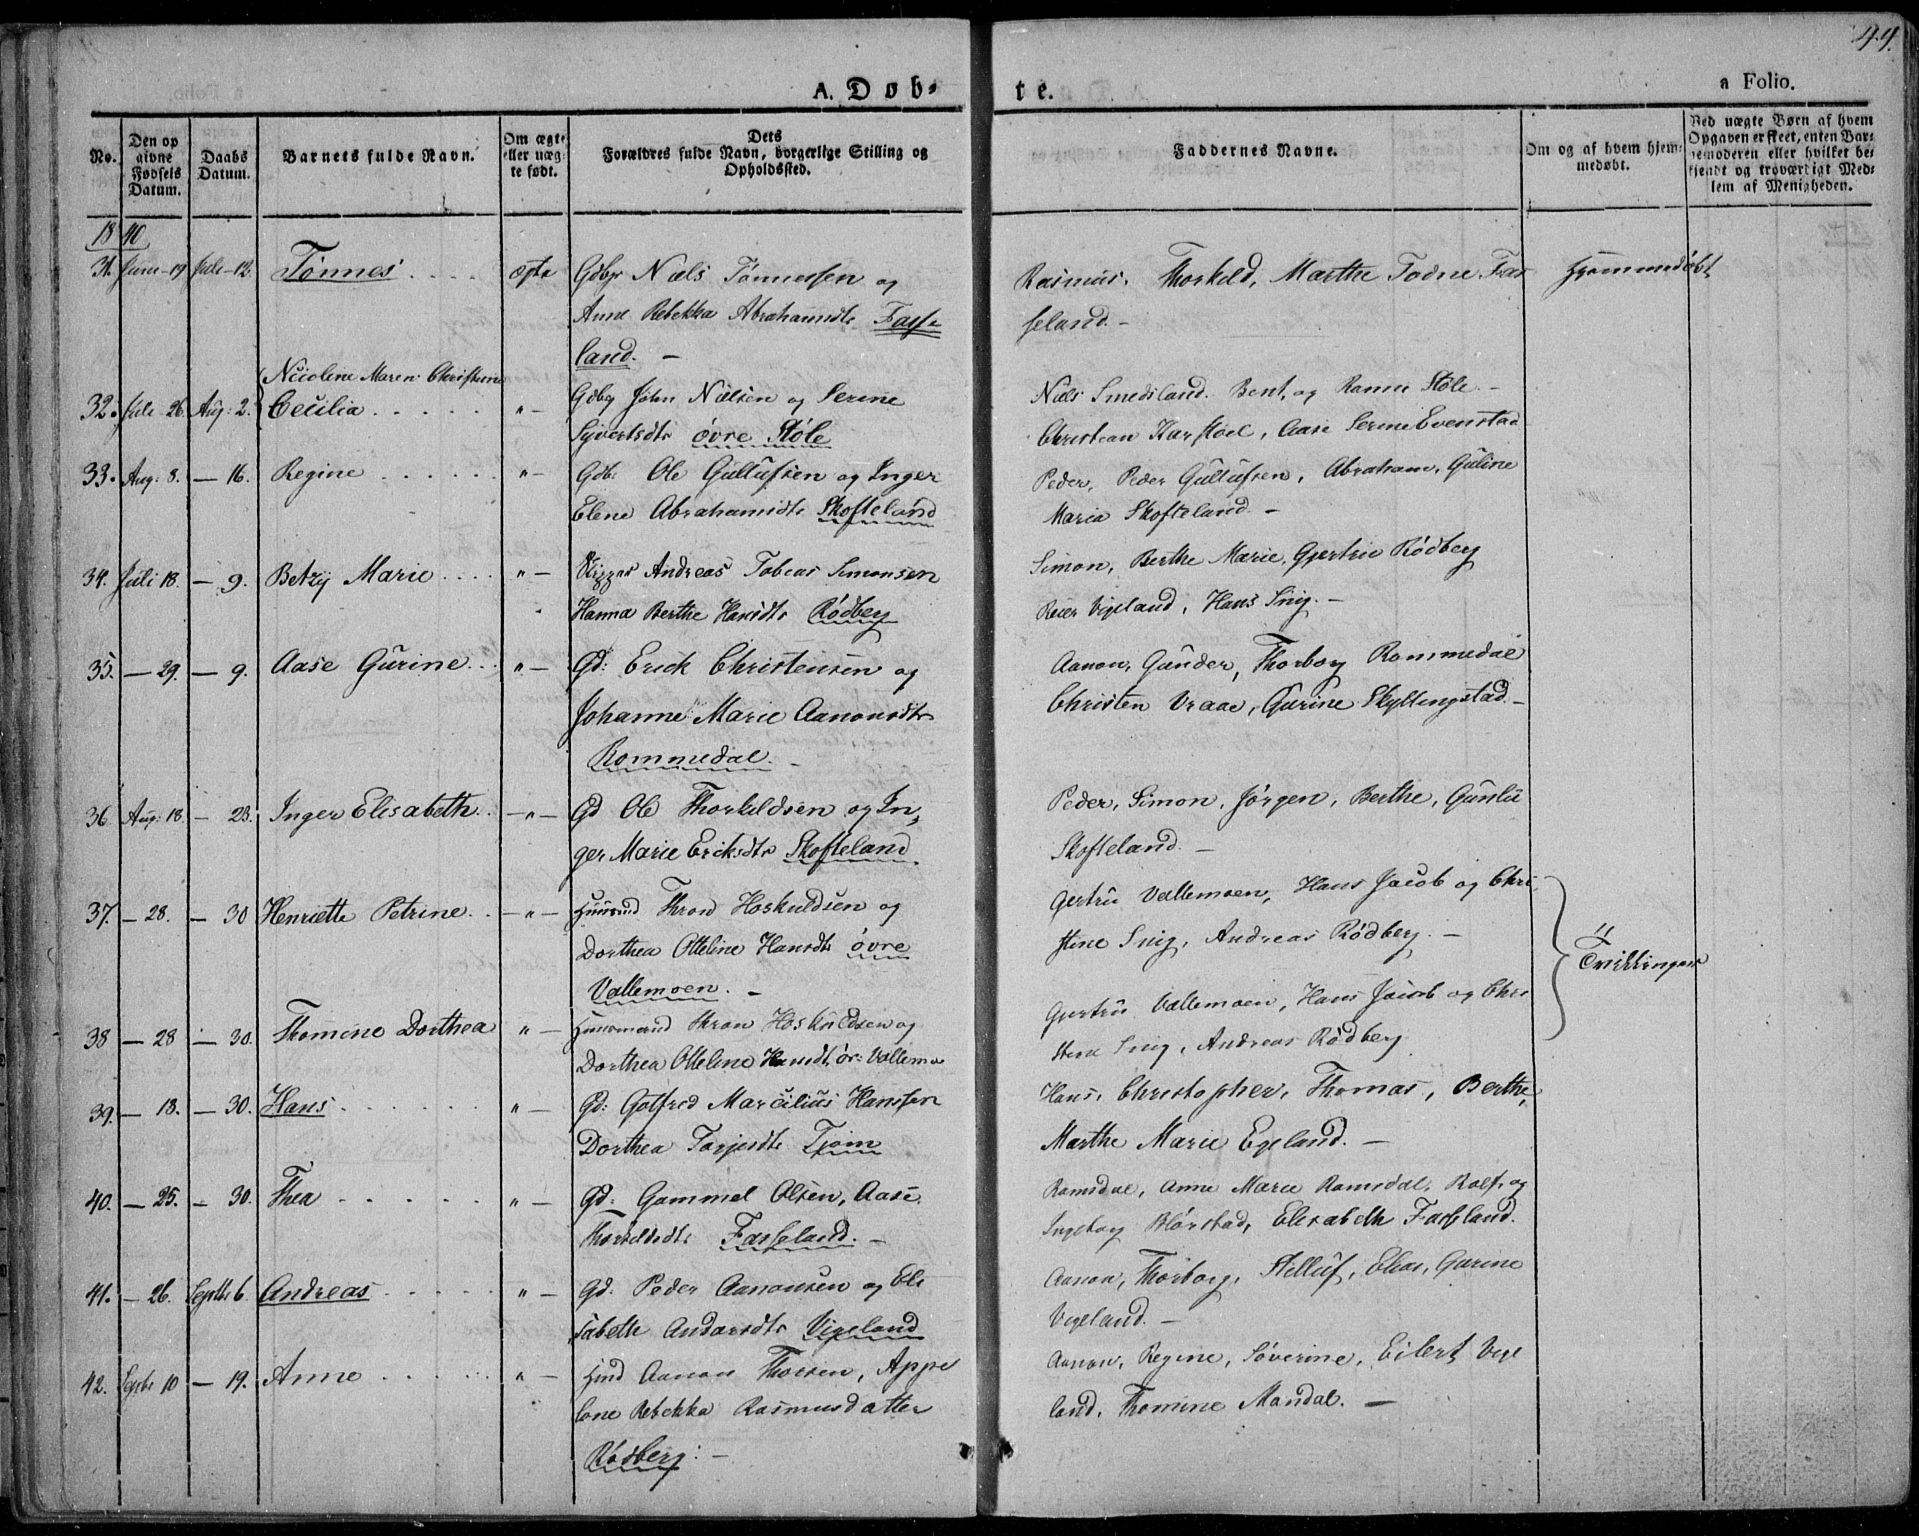 44.
A. Døb-
te.
a Folio.
No.
Den op
givne
Fødsels
Datum.
Daabs
Datum.
Barnets fulde Navn.
Om ægte
eller uæg-
te født.
Dets
Forældres fulde Navn, borgerlige Stilling og
Opholdssted.
Faddernes Navne.
Om og af hvem hjem-
medøbt.
Ved uægte Børn af hvem
Opgaven er skeet, enten Bar-
nemoderen eller hvilket be-
kjendt og troværdigt Med-
lem af Menigheden.
1840
31. Juni 19 Juli 12. Tønnes .... ægte Gdbr Niels Tønnessen og
Anne Rebekka Abrahamsdtr Fasse-
land. —
Rasmus, Thorkild, Marthe Todne Fas
seland. —
Hjemmedøbt
Nicolene Maren Christine
32. Juli 26 Aug: 2. Cecilia ..... "— Gdbr John Nielsen og Serine
Syvertsdtr øvre Støle
Niels Smedsland. Bent, og Støle —
Christian Karstøel, Aase Serine Evenstad
33. Aug: 8. — 16. Regine ..... "— Gdb: Ole Guttufsen og Inger
Elene Abrahamsdtr Skofteland
Peder, Peder Guttufsen, Abraham, Guline
Maria Skofteland. —
34. Juli 18. — 9. Betzy Marie .... "— Andreas Tobias Simonsen
Hanna Berthe Hansdtr Rødberg
Simon, Berthe Marie, Gjertru Rødberg
Reier Vigeland, Hans Snig. —
35. — 29. — 9. Aase Gurine ... "— Gd: Erick Christensen og
Johanne Marie Aanonsdtr
Rommedal. —
Aanon, Gunder, Thorborg Rommedal
Christen Vraae, Gurine Skyllingstad. —
36. Aug: 18. — 23. Inger Elisabeth .. —"— Gd Ole Thorkildsen og In-
ger Marie Ericksdtr Skofteland.
Peder, Simon, Jørgen, Berthe, Gunlu
Skofteland. —
37. — 28. — 30 Henriette Petrine .. —"— Huusmd Thron Hoskuldsen og
Dorthea Otteline Hansdtr øvre
Vallemoen. —
Gertru Vallemoen, Hans Jacob og Chri
stine Snig, Andreas Rødberg. —
Tvillinger
38 — 28 — 30. Thomine Dorthea "— Huusmand Thron Hoskuldsen og
Dorthea Otteline Hansdtr ør: Vallemo
Gjertru Vallemoen, Hans Jacob og Chri
stine Snig, Andreas Rødberg
39. — 18. — 30. Hans ...... "— Gd: Gotfred Marcilius Hanssen
Dorthea Tarjesdtr Tjom
Hans, Christopher, Thomas, Berthe,
Marthe Marie Egeland. —
40. — 25. — 30. Thea ..... "— Gd: Gammel Olsen, Aase
Thorkildsdtr Fasseland. —
Ramsdal, Anne Marie Ramsdal, Rolf, og
Ingeborg Blørstad, Elisabeth Fasseland.
41. — 26. Septb: 6. Andreas ..... "— Gd: Peder Aanonsen og Eli
sabeth Andersdtr Vigeland
Aanon, Thorborg, Stilluf, Elias, Gurine
Vigeland. —
42. Septb 10 — 19. Anne ...... "— Hmd Aanon Thorsen, Appe
lone Rebekka Rasmusdatter
Rødberg: —
Aanon, Regine, Søverine, Eilert Vige
land, Thomine Mandal. —